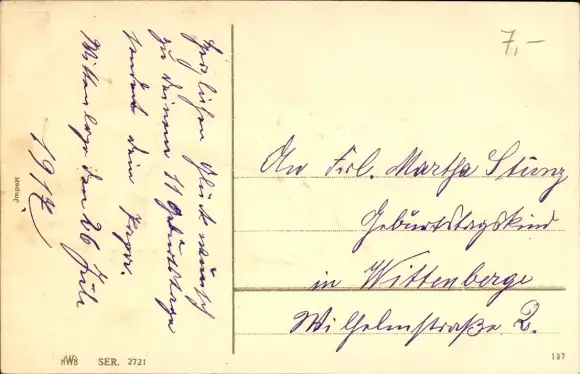 Herzlichen Glückwunsch
zu deinem 11 Geburtstage
sendet dein Papa.
Wittenberge den 26 Juli
1917
7,-
An Frl. Martha Stunz
Geburtstagskind
in Wittenberge
Wilhelmstraße 2.
Import
HWB SER. 2721
137